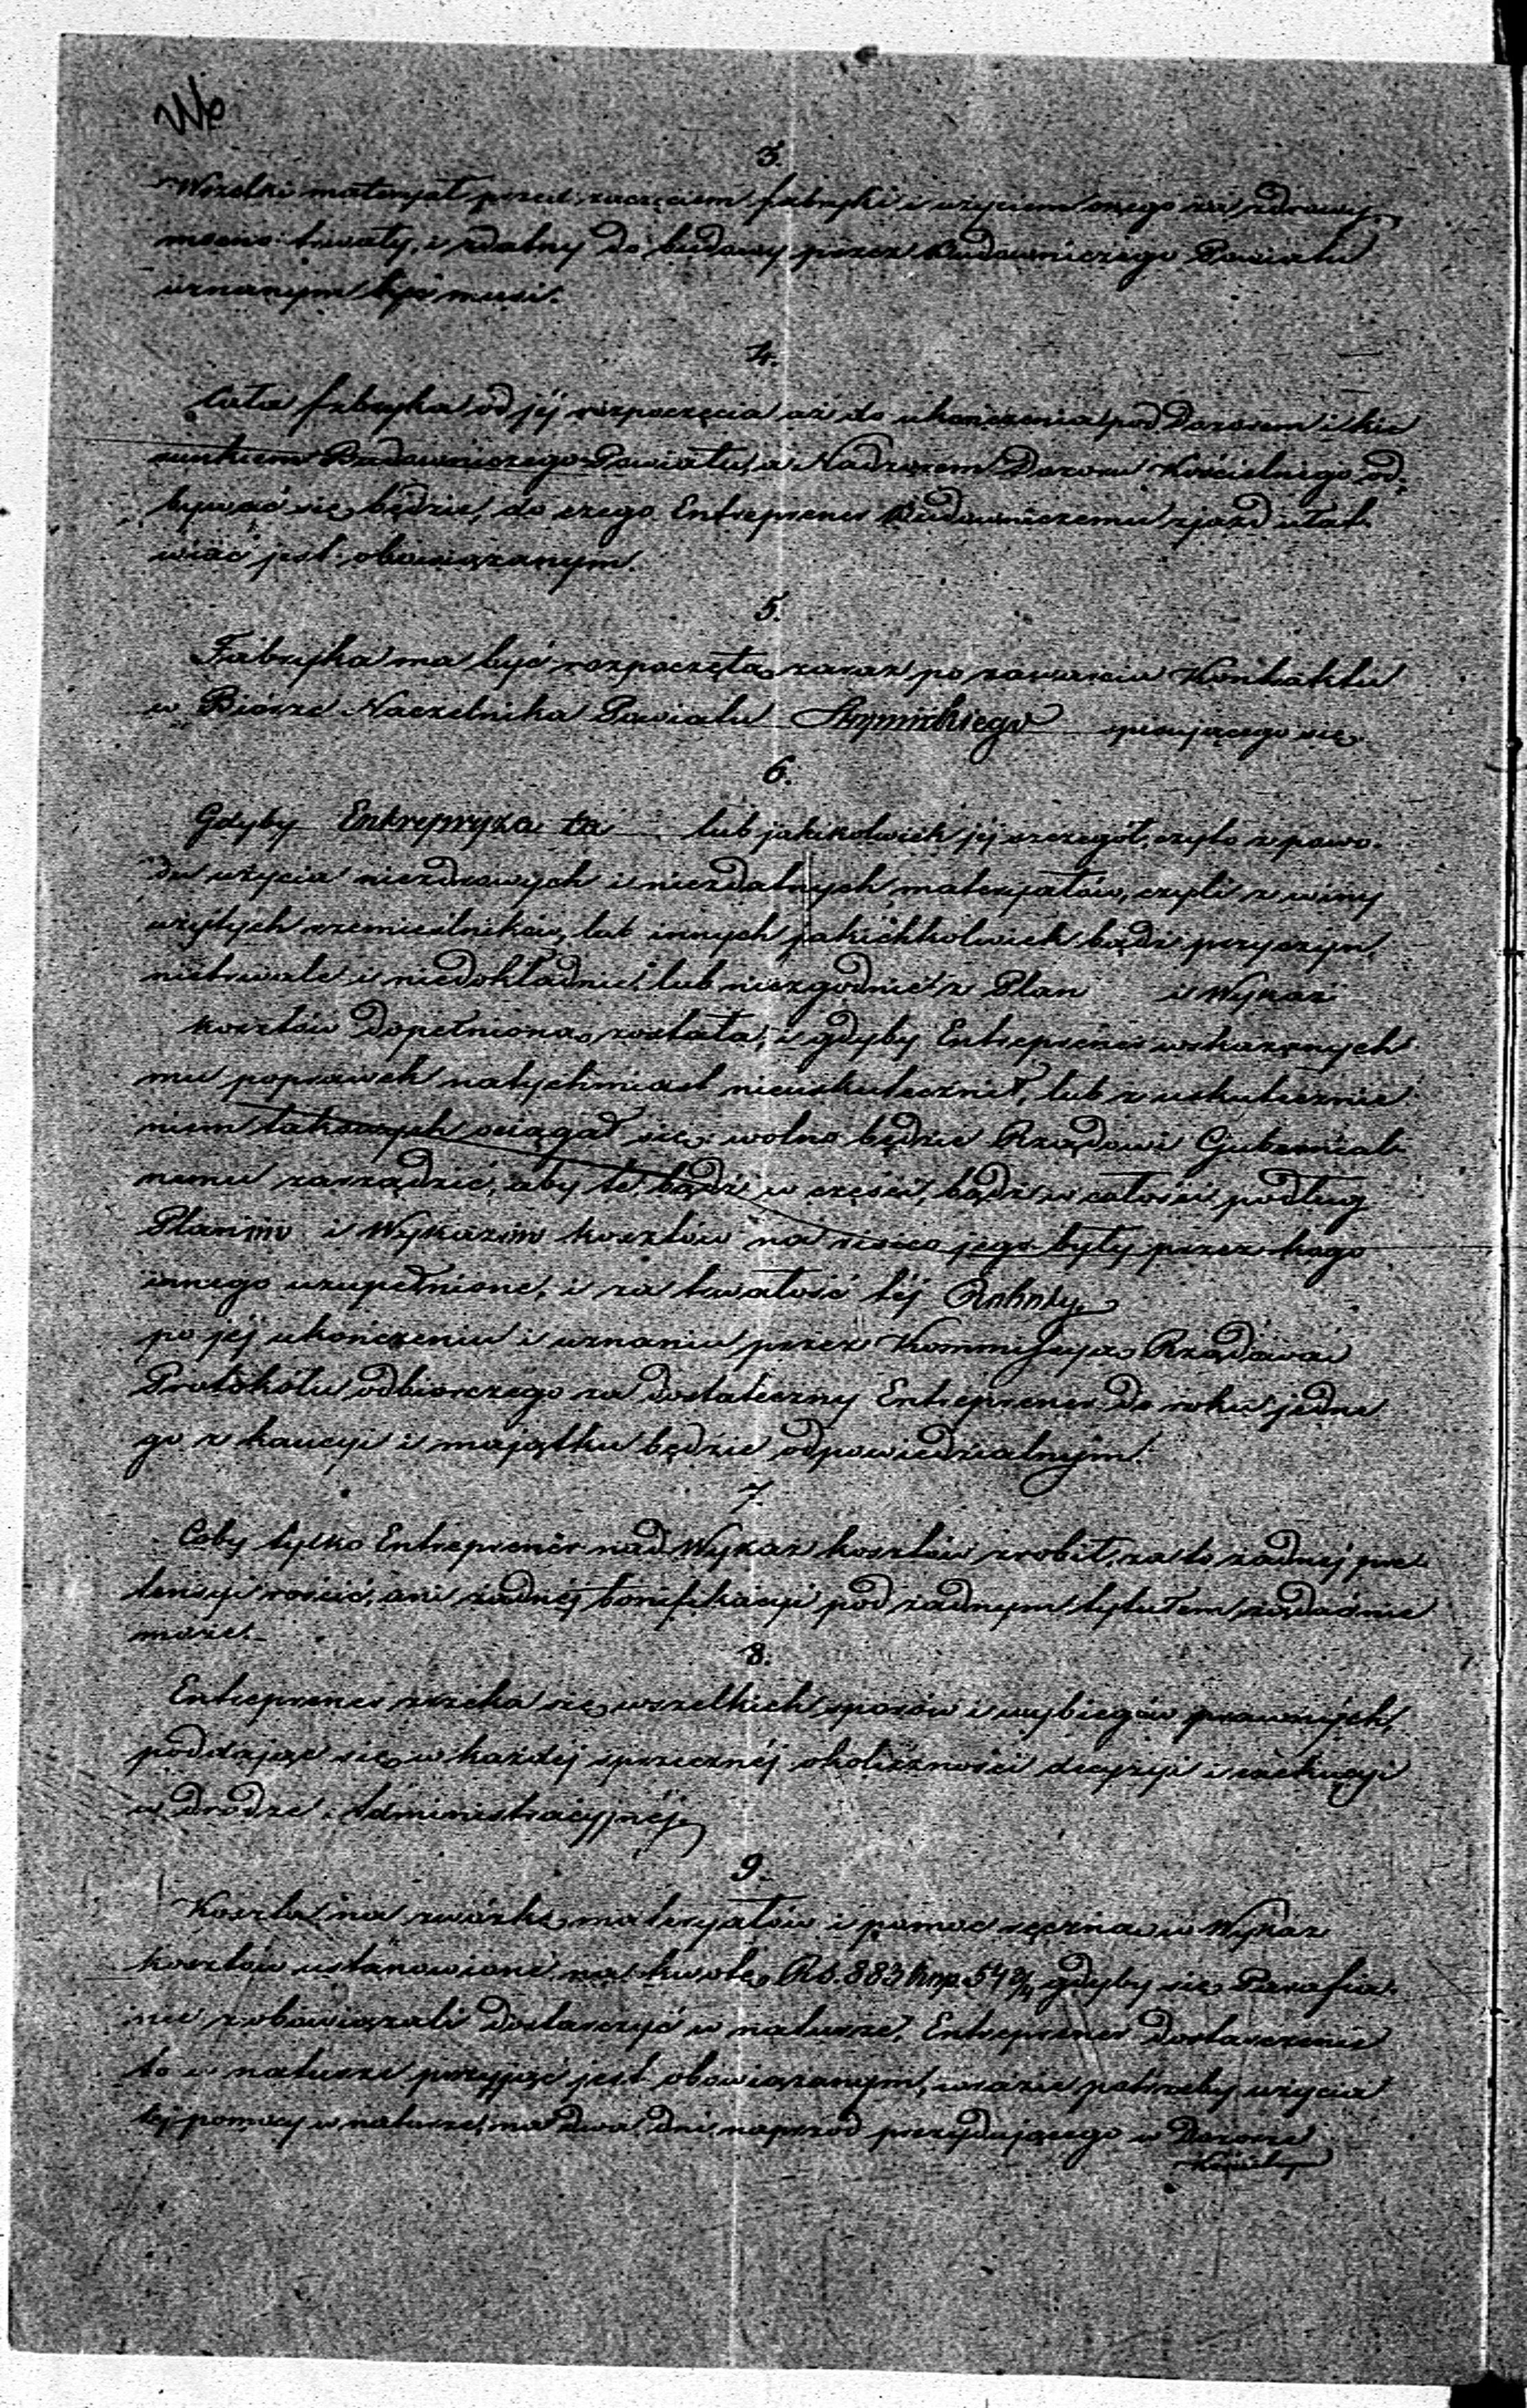 3.
Wszelki materyał przed zaczęciem fabryki i użyciem onego za zdrowy,
mocno trwały, i zdatny do budowy przez Budowniczego Powiatu
uznanym być musi.
4.
Cała fabryka od jéj rozpoczęcia aż do ukończenia pod Dozorem i kie
runkiem Budowniczego Powiatu, a Nadzorem Dozoru Kościelnego od-
bywać się będzie, do czego Entreprener Budowniczemu zjazd ułat-
wiać jest obowiązanym.
5.
Fabryka ma być rozpoczęta zaraz po zawarciu Kontraktu
w Biórze Naczelnika Powiatu spisującego się
6.
Gdyby Entrepryza ta lub jakikolwiek jéj szczegół, czyto z powo-
du użycia niezdrowych i niezdatnych materyałów, czyli z winy
użytych rzemieślników, lub innych jakichkolwiek bądź przyczyn,
nietrwale i niedokładnie, lub niezgodnie z Plan i Wykaz
kosztów dopełniona została, i gdyby Entreprener wskazanych
mu poprawek natychmiast nieuskutecznił, lub z uskutecznie
niem takowych ociągał się, wolno będzie Rządowi Gubernial-
nemu zarządzić, aby te, bądź w części, bądź w całości podług
Planów i Wykazów kosztów na risico jego były przez kogo
innego uzupełnione, i za trwałość téj Roboty
po jéj ukończeniu i uznaniu przez Kommissyą Rządową
Protokółu odbiorczego za dostateczny Entreprener do roku jedne
go z kaucyi i majątku będzie odpowiedzialnym.
7.
Coby tylko Entreprener nad Wykaz kosztów zrobił, za to żadnej pre-
tensyi rościć, ani żadnéj bonifikacyi pod żadnym tytułem żądać nie
może.
8.
Entreprener zrzeka się wszelkich sporów i wybiegów prawnych,
poddając się w każdéj sprzecznéj okoliczności decyzyi i exekucyi
w drodze Administracyjnéj
9.
Koszta na zwózkę materyałów i pomoc ręczna w Wykaz
kosztów ustanowione na kwotę Rs. 883 kop. 54 gdyby się Parafia-
nie zobowiązali dostarczyć w naturze, Entreprener dostarczenie
to w naturze przyjąć jest obowiązanym, w razie potrzeby użycia
téj pomocy w naturze, na dwa dni naprzód prezydującego w Dozorze